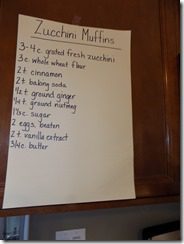 Zucchini Muffins
3-4 c. grated fresh zucchini
3 c. whole wheat flour
2 t. cinnamon
2 t. baking soda
1/2 t. ground ginger
1/4 t. ground nutmeg
1 1/3 c. sugar
2 eggs, beaten
2 t. vanilla extract
3/4 c. butter